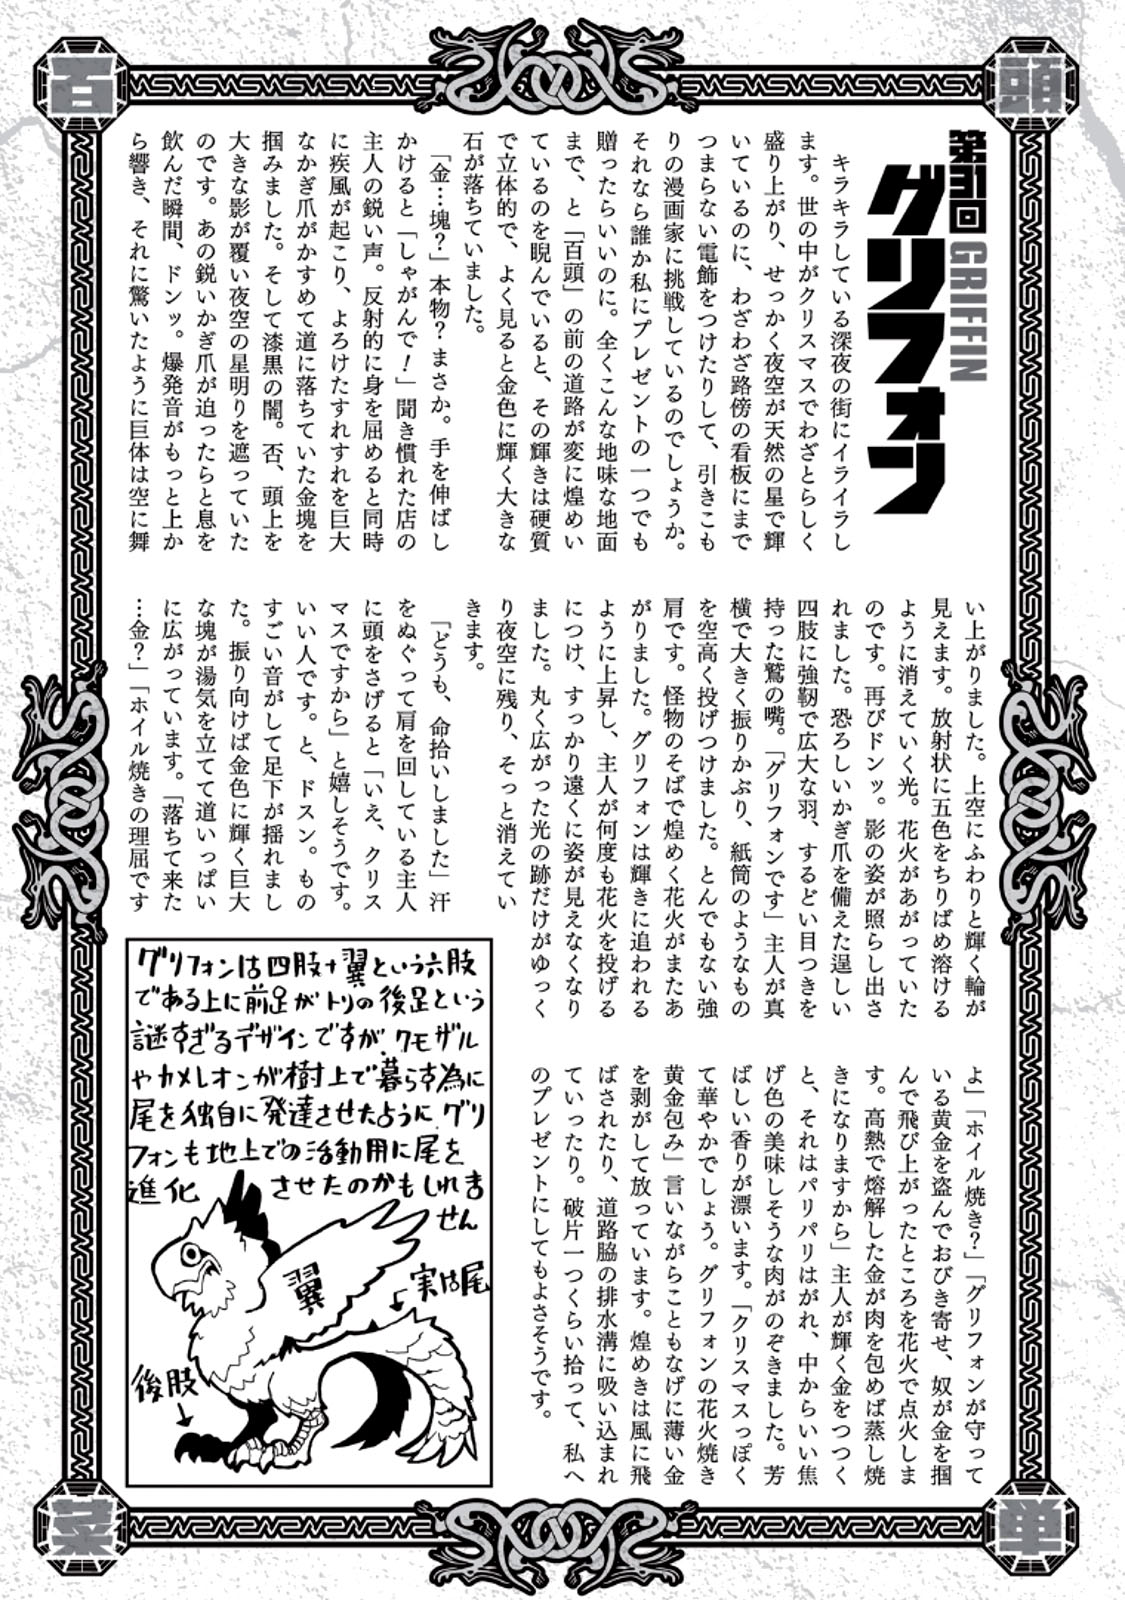 頭
百
第31回
GRIFFIN
グリフォン
キラキラしている深夜の街にイライラし
ます。世の中がクリスマスでわざとらしく
盛り上がり、せっかく夜空が天然の星で輝
いているのに、わざわざ路傍の看板にまで
つまらない電飾をつけたりして、引きこも
りの漫画家に挑戦しているのでしょうか。
それなら誰か私にプレゼントの一つでも
贈ったらいいのに。全くこんな地味な地面
まで、と「百頭」の前の道路が変に煌めい
ているのを睨んでいると、その輝きは硬質
で立体的で、よく見ると金色に輝く大きな
石が落ちていました。
「金…塊？」本物？まさか。手を伸ばし
かけると「しゃがんで！」聞き慣れた店の
主人の鋭い声。反射的に身を屈めると同時
に疾風が起こり、よろけたすれすれを巨大
なかぎ爪がかすめて道に落ちていた金塊を
掴みました。そして漆黒の闇。否、頭上を
大きな影が覆い夜空の星明りを遮っていた
のです。あの鋭いかぎ爪が迫ったらと息を
飲んだ瞬間、ドンッ。爆発音がもっと上か
ら響き、それに驚いたように巨体は空に舞
い上がりました。上空にふわりと輝く輪が
見えます。放射状に五色をちりばめ溶ける
ように消えていく光。花火があがっていた
のです。再びドンッ。影の姿が照らし出さ
れました。恐ろしいかぎ爪を備えた逞しい
四肢に強靭で広大な羽、するどい目つきを
持った鷲の嘴。「グリフォンです」主人が真
横で大きく振りかぶり、紙筒のようなもの
を空高く投げつけました。とんでもない強
肩です。怪物のそばで煌めく花火がまたあ
がりました。グリフォンは輝きに追われる
ように上昇し、主人が何度も花火を投げる
につけ、すっかり遠くに姿が見えなくなり
ました。丸く広がった光の跡だけがゆっく
り夜空に残り、そっと消えてい
きます。
「どうも、命拾いしました」汗
をぬぐって肩を回している主人
に頭をさげると「いえ、クリス
マスですから」と嬉しそうです。
いい人です。と、ドスン。もの
すごい音がして足下が揺れまし
た。振り向けば金色に輝く巨大
な塊が湯気を立てて道いっぱい
に広がっています。「落ちて来た
…金？」「ホイル焼きの理屈です
よ」「ホイル焼き？」「グリフォンが守って
いる黄金を盗んでおびき寄せ、奴が金を掴
んで飛び上がったところを花火で点火しま
す。高熱で熔解した金が肉を包めば蒸し焼
きになりますから」主人が輝く金をつつく
と、それはパリパリはがれ、中からいい焦
げ色の美味しそうな肉がのぞきました。芳
ばしい香りが漂います。「クリスマスっぽく
て華やかでしょう。グリフォンの花火焼き
黄金包み」言いながらこともなげに薄い金
を剥がして放っています。煌めきは風に飛
ばされたり、道路脇の排水溝に吸い込まれ
ていったり。破片一つくらい拾って、私へ
のプレゼントにしてもよさそうです。
グリフォンは四肢＋翼という六肢
である上に前足がトリの後足という
謎すぎるデザインですが、クモザル
やカメレオンが樹上で暮らす為に
尾を独自に発達させたように、グリ
フォンも地上での活動用に尾を
進化　させたのかもしれま
せん
翼
実は尾
後肢
単
菜